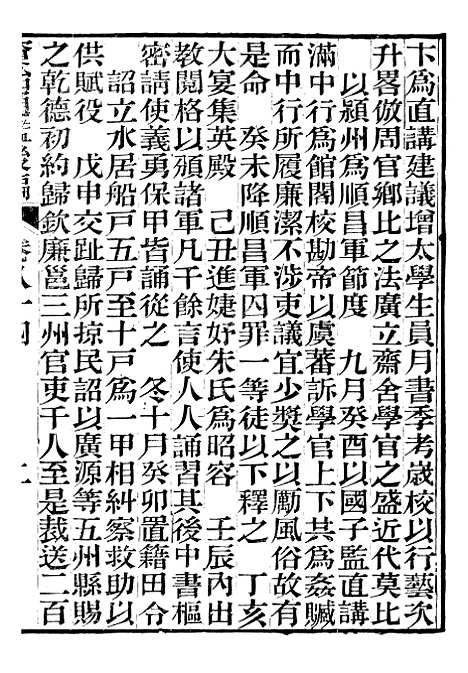 卞爲直講建議增太學生員月書季考歲校以行藝次
升畧倣周官鄉比之法廣立齋舍學官之盛近代莫比
以潁州爲順昌軍節度　九月癸酉以國子監直講
滿中行爲館閣校勘帝以虞蕃訴學官上下共爲姦贓
而中行所履廉潔不涉吏議宜少奬之以勵風俗故有
是命　癸未降順昌軍囚罪一等徒以下釋之　丁亥
大宴集英殿　己丑進婕妤朱氏爲昭容　壬辰內出
教閱格以頒諸軍凡千餘言使人人誦習其後中書樞
密請使義勇保甲皆誦從之　冬十月癸卯置籍田令
詔立水居船戸五戸至十戸爲一甲相糾察救助以
供賦役　戊申交趾歸所掠民詔以廣源等五州縣賜
之乾德初約歸欽廉邕三州官吏千人至是裁送二百
卷八十四